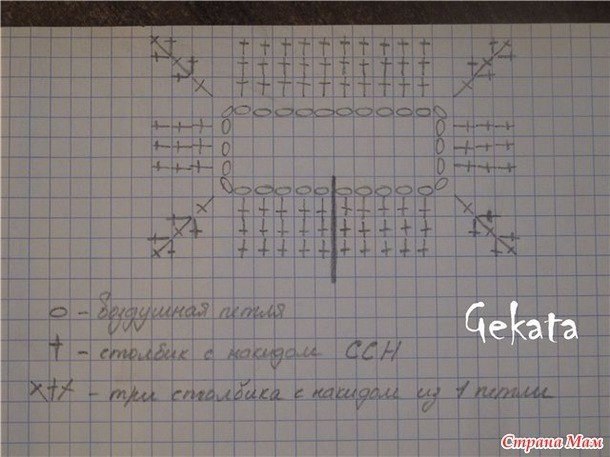 O - воздушная петля
† - столбик с накидом ССН
х†† - три столбика с накидом из 1 петли
Gekata
Страна Мам